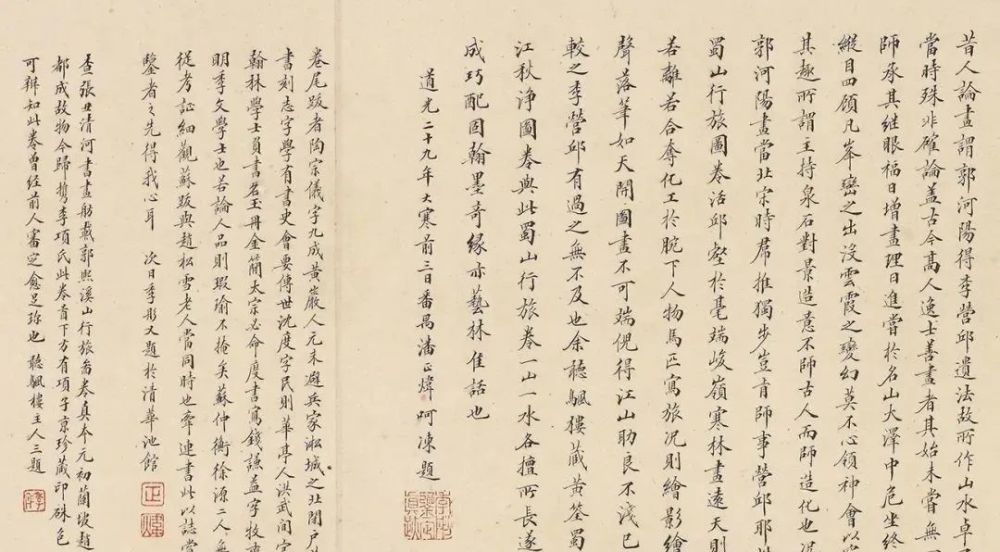 昔人論畫謂郭河陽得李營邱遺法故所作山水卓
當時殊非確論蓋古今高人逸士善畫者其始未嘗無
師承其継眼福日增畫理日進嘗於名山大澤中危坐終
縱目四顧凡峯巒之出沒雲霞之變幻莫不心領神會以
其趣所謂主持泉石對景造意不師古人而師造化也況
郭河陽畫當北宋時席推獨步豈肯師事營邱耶
蜀山行旅圖卷活邱壑於毫端峻嶺寒林畫遠天則
若離若合奪化工於腕下人物馬匹寫旅況則繪影繪
聲落筆如天開圖畫不可端倪得江山助良不淺已
較之李營邱有過之無不及也余聽颿樓藏黃筌蜀
江秋淨圖卷與此蜀山行旅卷一山一水各擅所長遂
成巧配固翰墨奇緣亦藝林佳話也
道光二十九年大寒前三日番禺潘正煒呵凍題
卷尾跋者陶宗儀字九成黃巖人元末避兵家淞城之北閉戶
書刻志字學有書史會要傳世沈度字民則華亭人洪武間
翰林學士員書名玉冊金簡太宗必命度書寫錢謙益字牧
明季文學士也若論人品則瑕瑜不掩矣蘇仲衡徐源二人無
從考証細觀蘇跋與趙松雪老人當同時也牽連書此以誌
鑒者之先得我心耳 次日季彤又題於清華池館
正煒
查張丑清河書畫舫載郭熙溪山行旅畨卷真本元初蘭坡題
都成故物今歸携李項氏此卷首下方有項子京珍藏印硃色
可辨知此卷曾經前人審定愈足珍也 聽颿樓主人三題